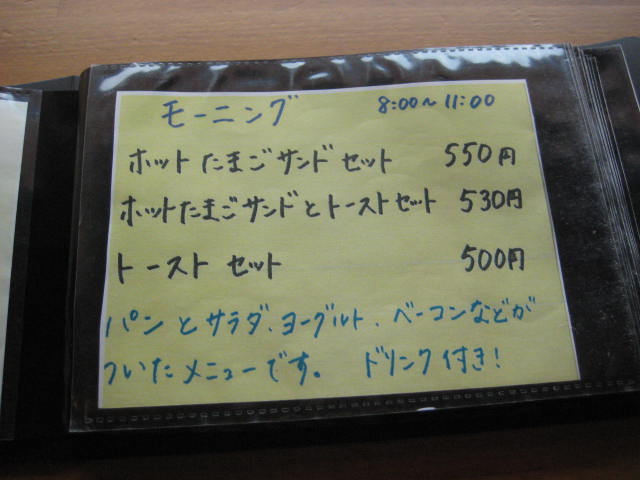 モーニング 8:00~11:00
ホットたまごサンドセット 550円
ホットたまごサンドとトーストセット 530円
トースト セット 500円
パンとサラダ、ヨーグルト、ベーコンなどが
ついたメニューです。 ドリンク付き!